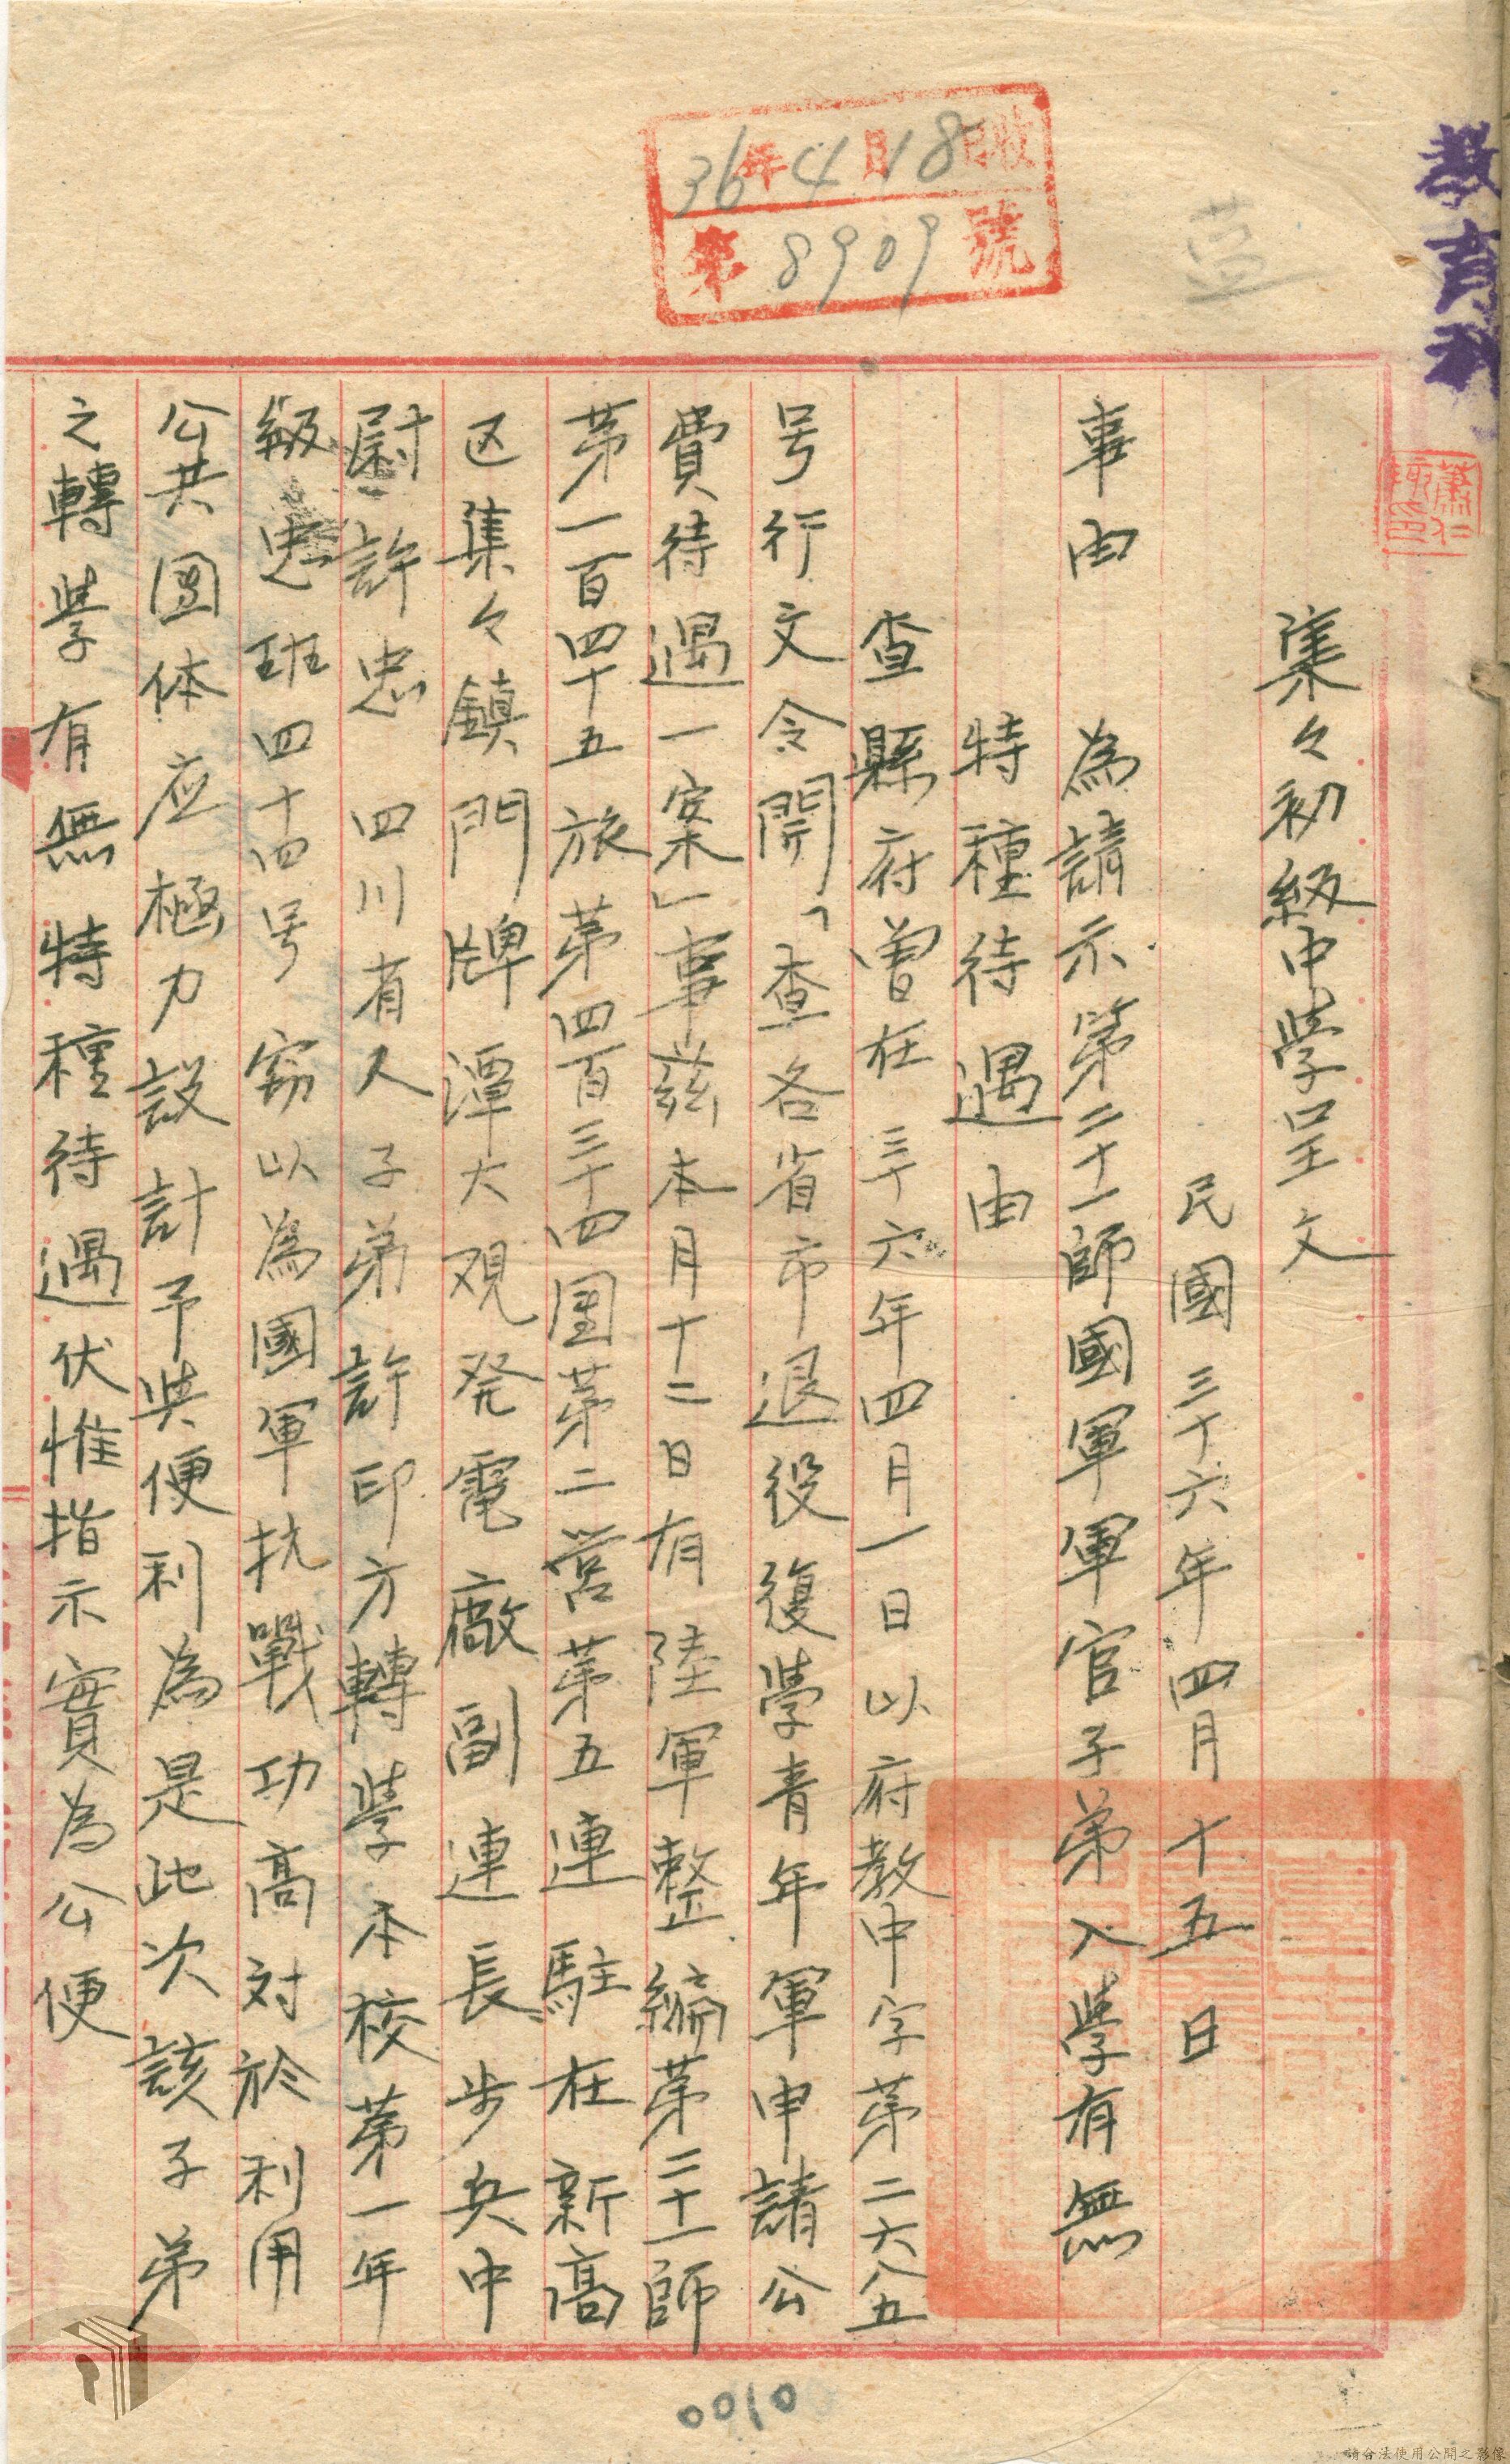 教育科
36年4月18日收
第8909號
集々初級中学呈文
民國三十六年四月十五日
事由 為請示第二十一師國軍軍官子弟入学有無
特種待遇由
查縣府曽在三十六年四月一日以府教中字第二六八五
号行文令開「查各省市退役復学青年軍申請公
費待遇一案」事茲本月十二日有陸軍整編第二十一師
第一百四十五旅第四百三十四團第二营第五連駐在新高
区集々鎮門牌潭大观発電廠副連長步兵中
尉許忠四川省人子弟許印方轉学本校第一年
級忠班四十四号窃以為國軍抗戰功高対於利用
公共團体应極力設計予與便利為是此次該子弟
之轉学有無特種待遇伏惟指示實為公便
0010
請合法使用公開之影像